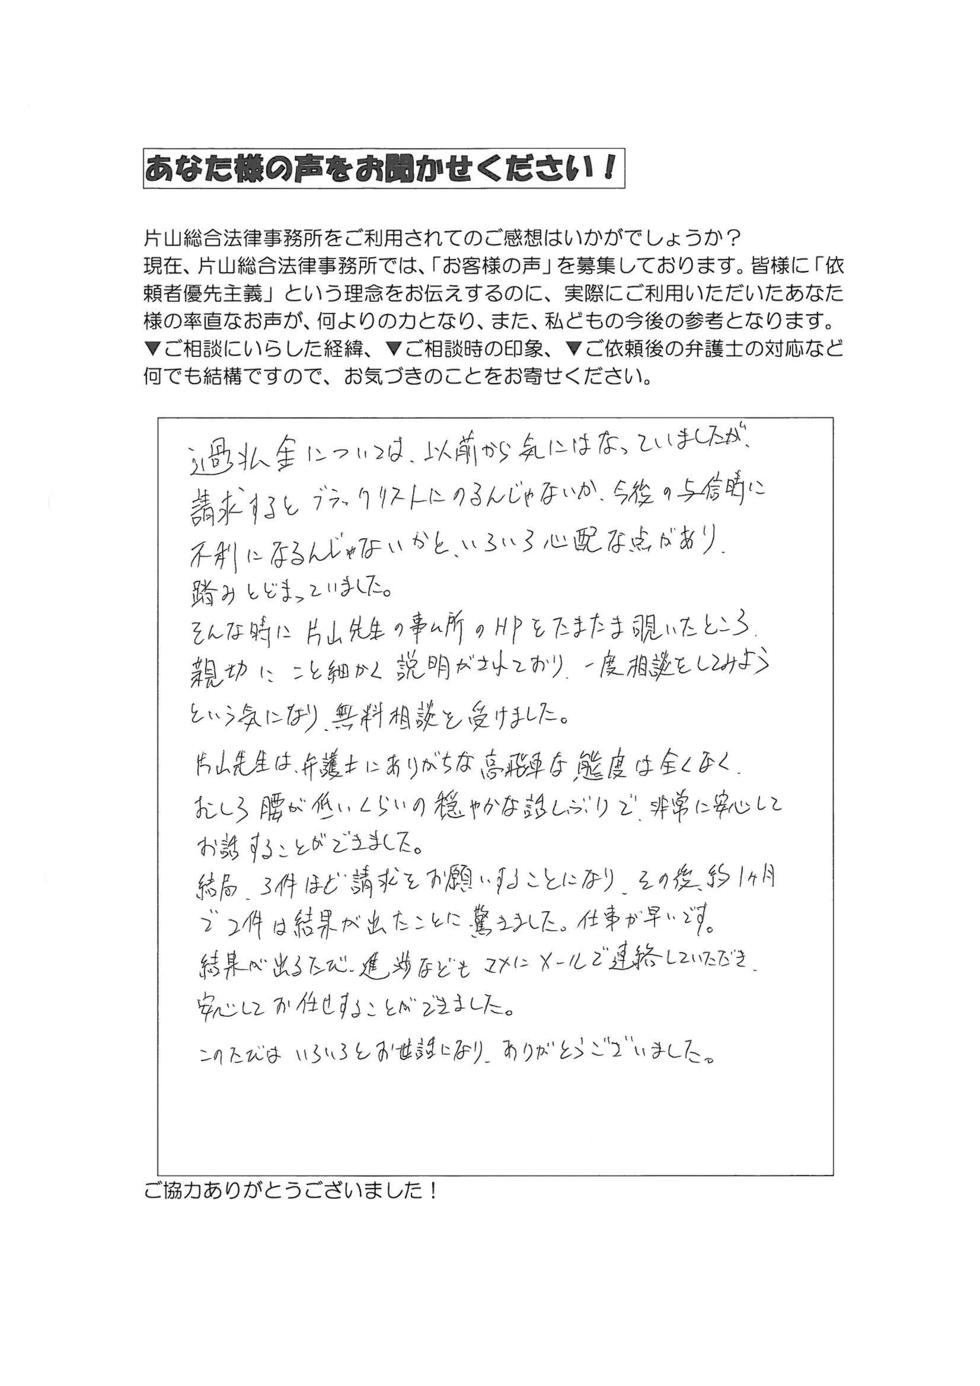 あなた様の声をお聞かせください！
片山総合法律事務所をご利用されてのご感想はいかがでしょうか？
現在、片山総合法律事務所では、「お客様の声」を募集しております。皆様に「依
頼者優先主義」という理念をお伝えするのに、実際にご利用いただいたあなた
様の率直なお声が、何よりの力となり、また、私どもの今後の参考となります。
▼ご相談にいらした経緯、▼ご相談時の印象、▼ご依頼後の弁護士の対応など
何でも結構ですので、お気づきのことをお寄せください。
過払金については、以前から気にはなっていましたが、
請求するとブラックリストにのるんじゃないか、今後の与信時に
不利になるんじゃないかと、いろいろ心配な点があり、
踏みとどまっていました。
そんな時に片山先生の事ム所のHPをたまたま覗いたところ、
親切にこと細かく説明がされており、一度相談をしてみよう
という気になり、無料相談を受けました。
片山先生は、弁護士にありがちな高飛車な態度は全くなく、
むしろ腰が低いくらいの穏やかな話しぶりで、非常に安心して
お話することができました。
結局、3件ほど請求をお願いすることになり、その後、約1ヶ月
で2件は結果が出たことに驚きました。仕事が早いです。
結果が出るたび、進捗などもマメにメールで連絡していただき、
安心してお任せすることができました。
このたびはいろいろとお世話になり、ありがとうございました。
ご協力ありがとうございました！